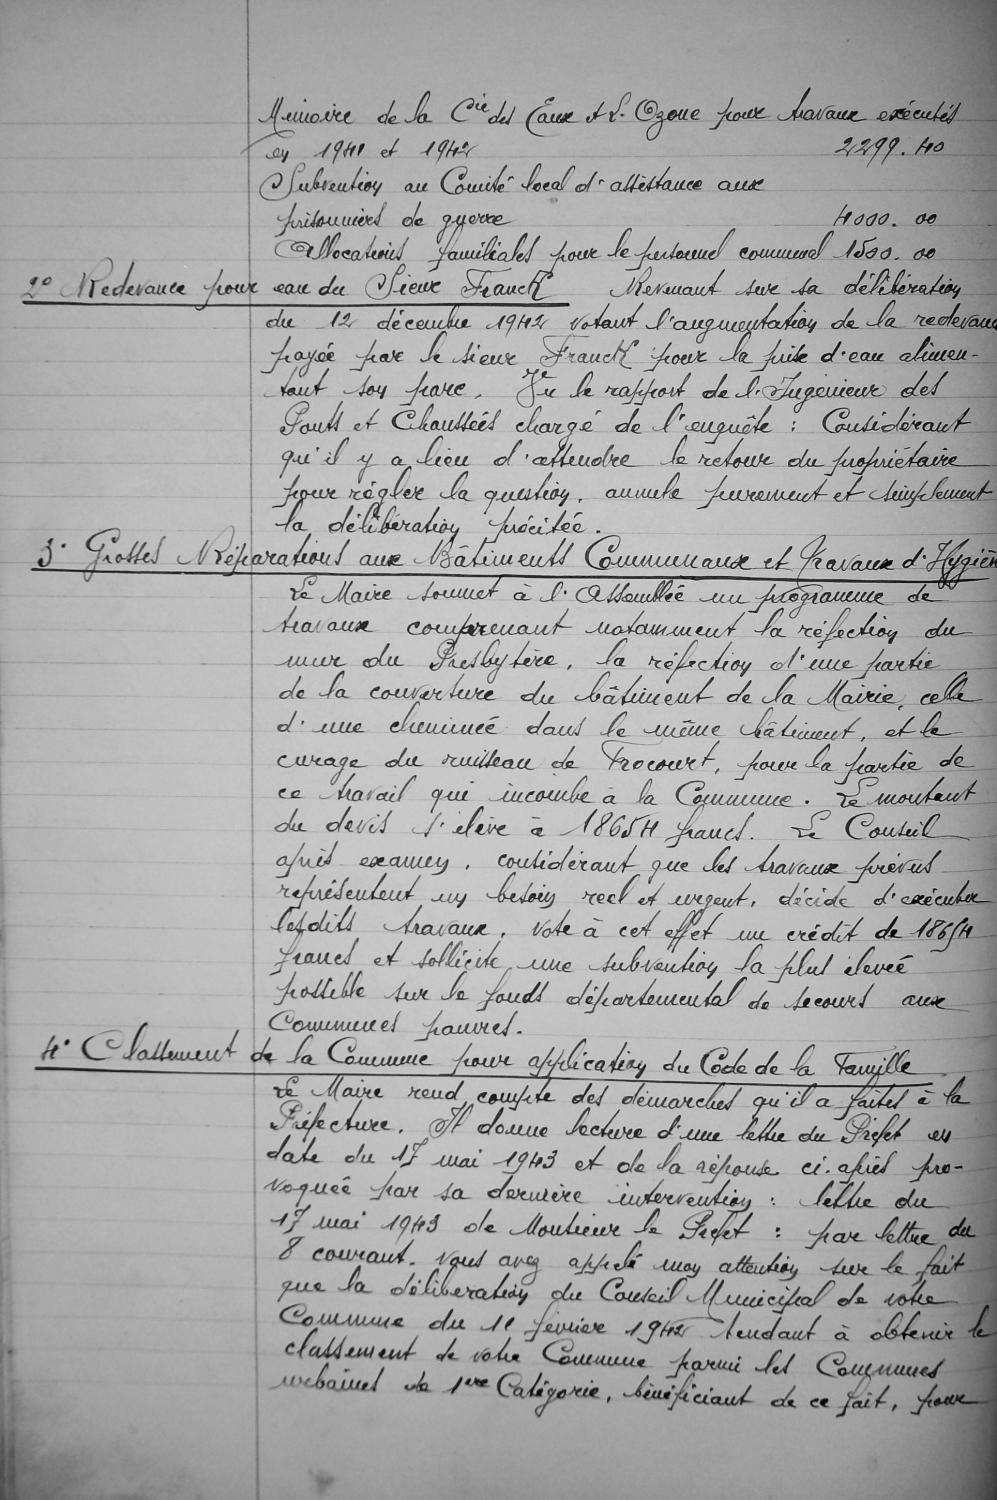 Mémoire de la Cie des Eaux et L'Ozone pour travaux exécutés
en 1941 et 1942 2299.40
Subvention au Comité local d'assistance aux
prisonniers de guerre 4000.00
Allocations familiales pour le personnel communal 1500.00
2° Redevance pour eau du Sieur Franck Revenant sur sa délibération
du 12 décembre 1942 votant l'augmentation de la redevance
payée par le sieur Franck pour la prise d'eau alimen-
tant son parc. Vu le rapport de l'Ingénieur des
Ponts et Chaussées chargé de l'enquête : Considérant
qu'il y a lieu d'attendre le retour du propriétaire
pour régler la question, annule purement et simplement
la délibération précitée.
3° Grosses Réparations aux Bâtiments Communaux et Travaux d'Hygiène
Le Maire soumet à l'Assemblée un programme de
travaux comprenant notamment la réfection du
mur du Presbytère, la réfection d'une partie
de la couverture du bâtiment de la Mairie, celle
d'une cheminée dans le même bâtiment, et le
curage du ruisseau de Frocourt, pour la partie de
ce travail qui incombe à la Commune. Le montant
du devis s'élève à 18654 francs. Le Conseil
après examen, considérant que les travaux prévus
représentent un besoin réel et urgent, décide d'exécuter
lesdits travaux, vote à cet effet un crédit de 18654
francs et sollicite une subvention la plus élevée
possible sur le fonds départemental de secours aux
Communes pauvres.
4° Classement de la Commune pour application du Code de la Famille
Le Maire rend compte des démarches qu'il a faites à la
Préfecture. Il donne lecture d'une lettre du Préfet en
date du 17 mai 1943 et de la réponse ci-après pro-
voquée par sa dernière intervention : lettre du
17 mai 1943 de Monsieur le Préfet : par lettre du
8 courant, vous avez appelé mon attention sur le fait
que la délibération du Conseil Municipal de votre
Commune du 11 février 1942 tendant à obtenir le
classement de votre Commune parmi les Communes
urbaines de 1ère Catégorie, bénéficiant de ce fait, pour